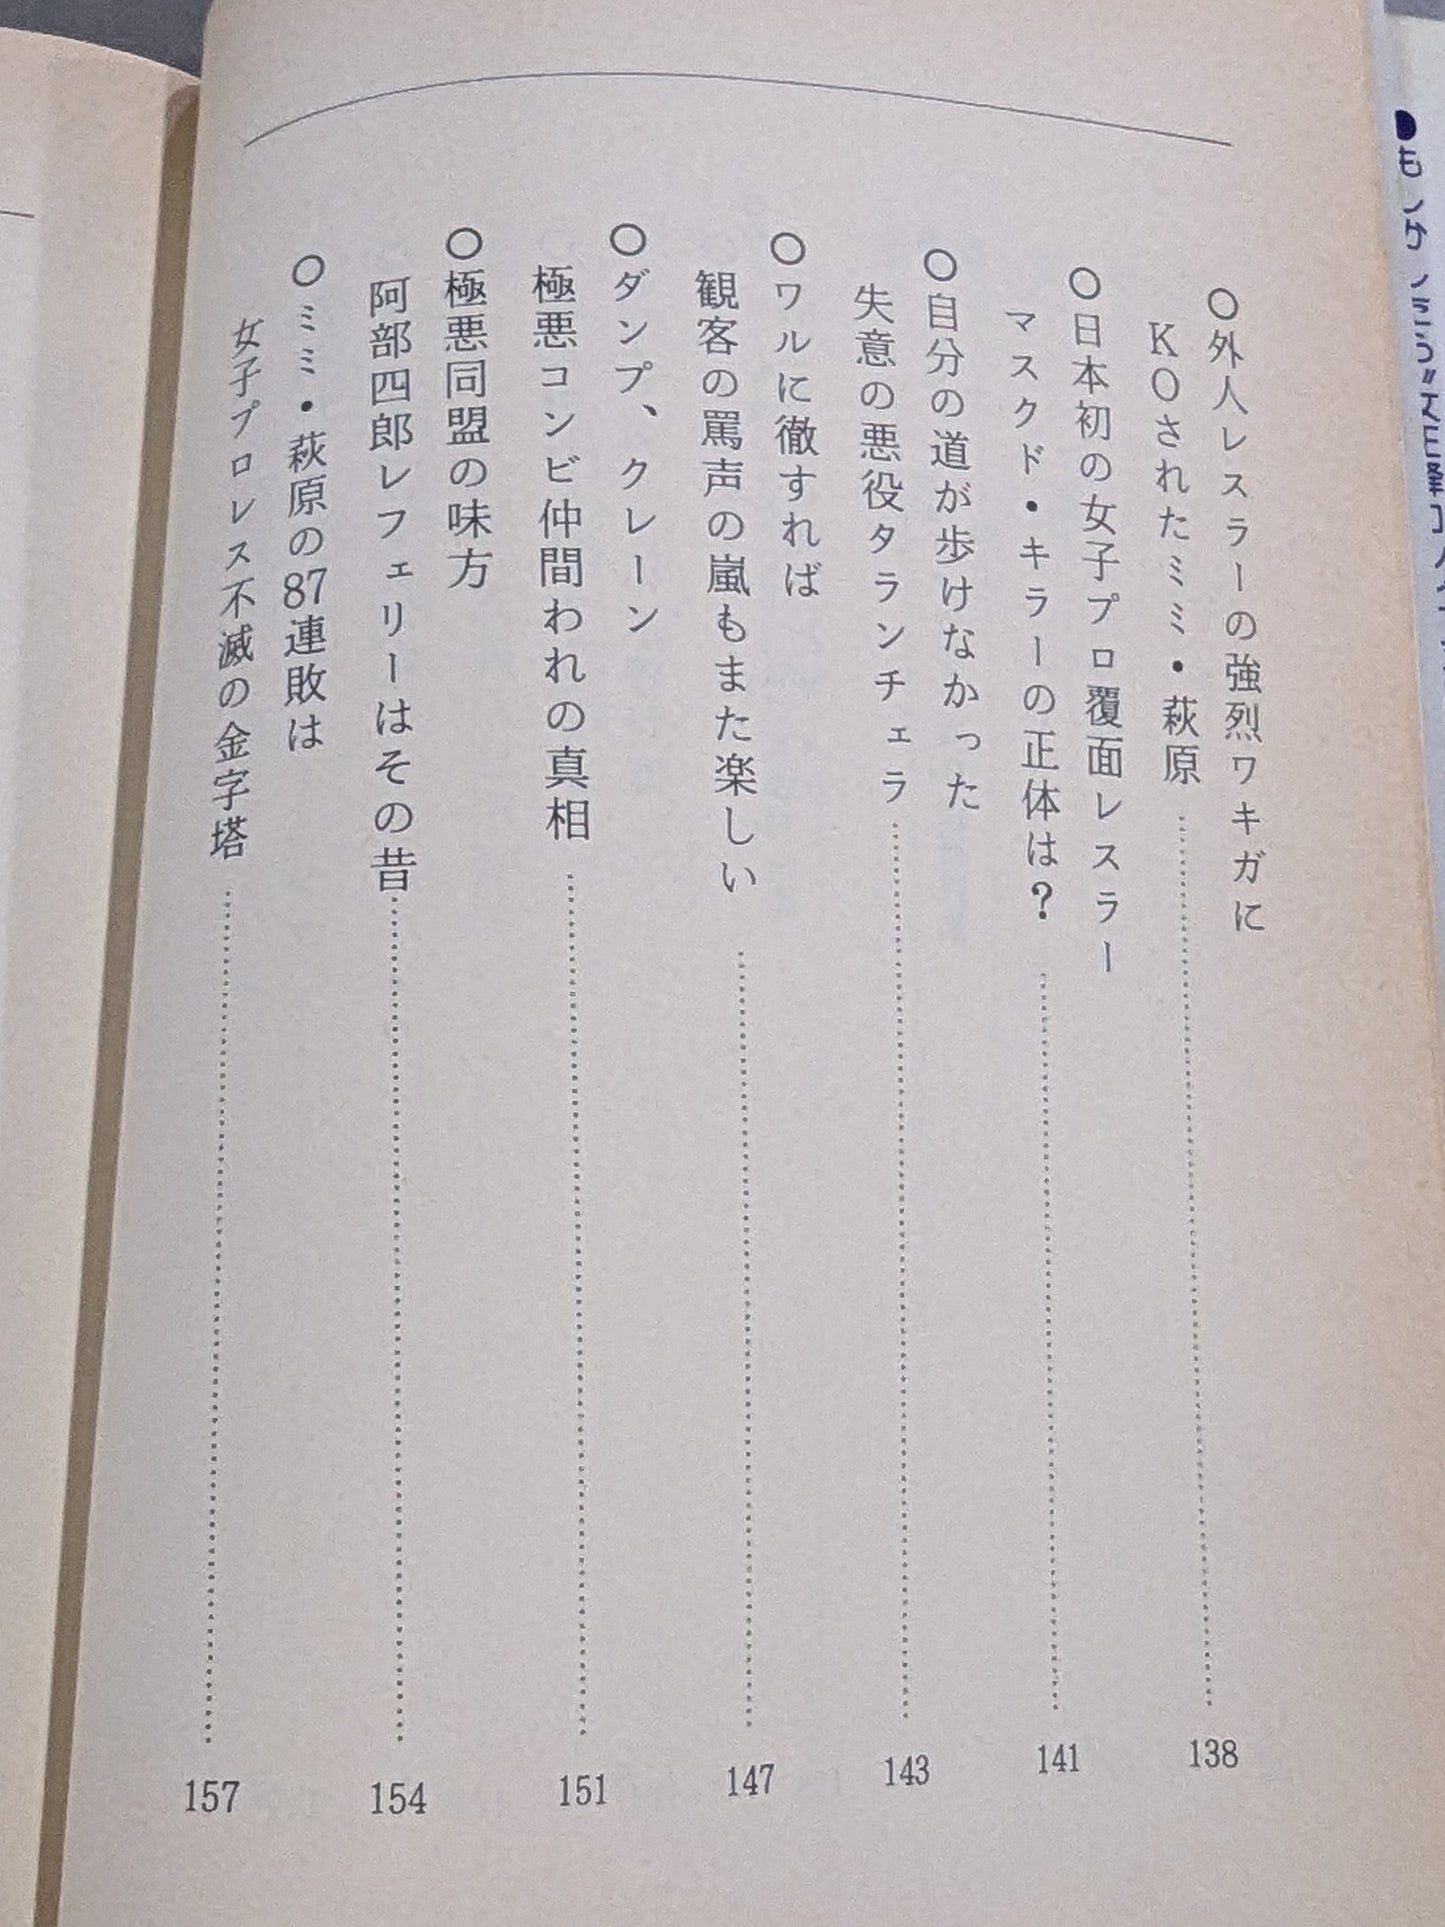 ○外人レスラーの強烈ワキガに
KOされたミミ・萩原……138
○日本初の女子プロ覆面レスラー
マスクド・キラーの正体は?……141
○自分の道が歩けなかった
失意の悪役タランチェラ……143
○ワルに徹すれば
観客の罵声の嵐もまた楽しい……147
○ダンプ、クレーン
極悪コンビ仲間われの真相……151
○極悪同盟の味方
阿部四郎レフェリーはその昔……154
○ミミ・萩原の87連敗は
女子プロレス不滅の金字塔……157